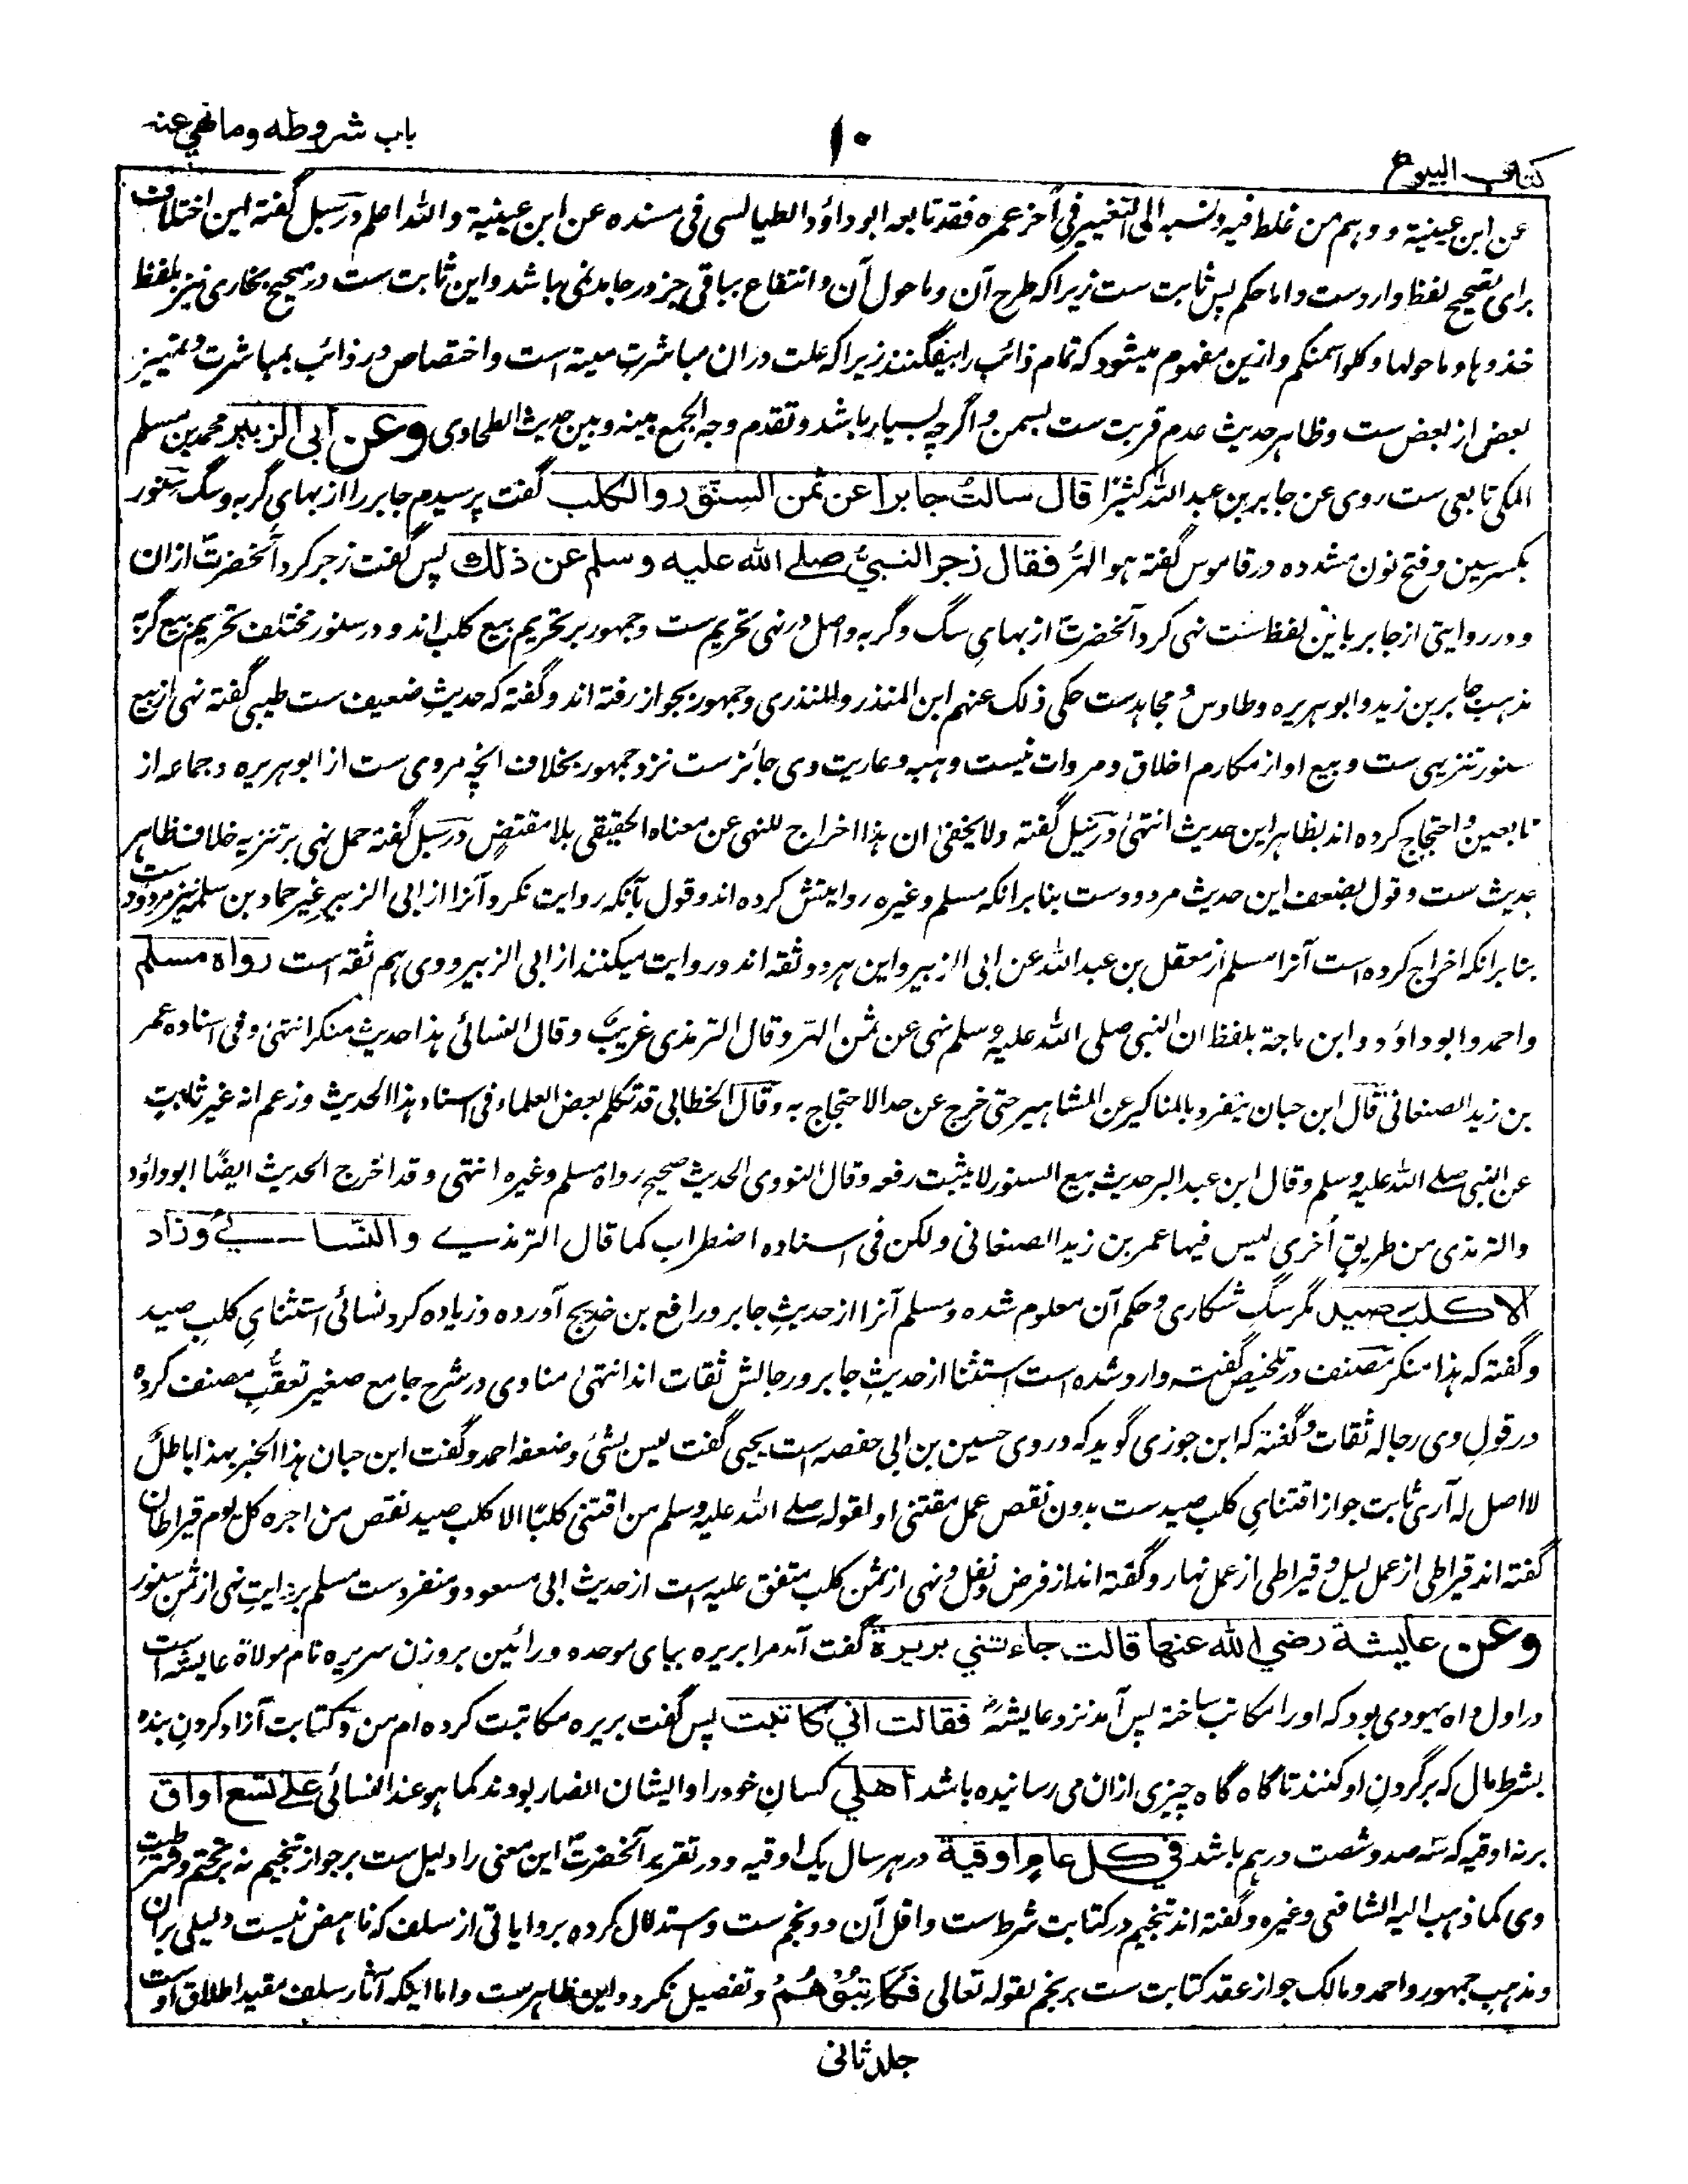 کتاب البیوع
۱۰
باب شروطه وما نهي عنه
عن ابن عیینة و وہم من غلط فیه ونسبه الی التغییر فی آخر عمره فقد تابعه ابو داؤد الطیالسی فی مسنده عن ابن عیینة والله اعلم در سبل گفته این اختلاف
برای تصحیح لفظ وارد ست و اما حکم پس ثابت ست زیرا که طرح آن و ماحول آن و انتفاع بباقی جز در جامد نمی باشد و این ثابت ست در صحیح بخاری نیز بلفظ
خذوہا و ماحولہا و کلوا سمنکم و ازین مفہوم میشود که تمام ذائب را بیفگنند زیرا که علت دران مباشرتِ میتة است و اختصاص در ذائب بمباشرت و تمییز
بعض از بعض ست و ظاہر حدیث عدم قربت ست بسمن و اگرچہ بسیار باشد و تقدم وجه الجمع بینه و بین حدیث الطحاوی وعن ابی الزبیر محمد بن مسلم
المکی تابعی ست روی عن جابر بن عبد الله کثیرًا قال سالتُ جابرا عن ثمن السنّور والکلب گفت پرسیدم جابر را از بهای گربه و سگ سنور
بکسر سین و فتح نون مشدده در قاموس گفته هو الہرُّ فقال زجر النبيُّ صلے الله عليه وسلم عن ذلك پس گفت زجر کرد آنحضرت ازان
و در روایتی از جابر باین لفظ ست نہی کرد آنحضرت از بهای سگ و گربه و اصل در نہی تحریم ست و جمہور بر تحریم بیع کلب اند و در سنور مختلف تحریم بیع گربہ
مذہب جابر بن زید و ابو ہریره و طاوس و مجاہد ست حکی ذلک عنہم ابن المنذر و المنذری و جمہور بجواز رفته اند و گفته که حدیث ضعیف ست طیبی گفته نہی از بیع
سنور تنزیہی ست و بیع او از مکارم اخلاق و مروات نیست و ہبه و عاریت وی جائز ست نزد جمہور بخلاف انچه مروی ست از ابو ہریره و جماعه از
تابعین و احتجاج کرده اند بظاہر این حدیث انتہیٰ و در نیل گفته ولا یخفیٰ ان ہذا اخراج للنہی عن معناه الحقیقی بلا مقتضٍ در سبل گفته حمل نہی بر تنزیه خلاف ظاہر
حدیث ست و قول بضعف این حدیث مردود ست بنا برانکه مسلم و غیره روایتش کرده اند و قول بآنکه روایت نکرد آنرا از ابی الزبیر غیر حماد بن سلمه نیز مردود ست
بنا برانکه اخراج کرده است آنرا مسلم از معقل بن عبد الله عن ابی الزبیر و این ہر دو ثقه اند و روایت میکنند از ابی الزبیر و وی ہم ثقه است رواه مسلم
و احمد و ابو داؤد و ابن ماجة بلفظ ان النبی صلی الله علیه وسلم نہی عن ثمن الہر و قال الترمذی غریبٌ و قال النسائی ہذا حدیث منکر انتہیٰ و فی اسناده عمر
بن زید الصنعانی قال ابن حبان ینفرد بالمناکیر عن المشاہیر حتی خرج عن حد الاحتجاج به و قال الخطابی قد تکلم بعض العلماء فی اسناد ہذا الحدیث و زعم انه غیر ثابتٍ
عن النبی صلے الله علیه وسلم و قال ابن عبد البر حدیث بیع السنور لا یثبت رفعه و قال النووی الحدیث صحیح رواه مسلم و غیره انتہی و قد اخرج الحدیث ایضًا ابو داؤد
و الترمذی من طریقٍ اُخری لیس فیہا عمر بن زید الصنعانی و لکن فی اسناده اضطراب کما قال الترمذے والنسائیُ وزاد
الا کلب صید مگر سگِ شکاری و حکم آن معلوم شده و مسلم آنرا از حدیثِ جابر و رافع بن خدیج آورده و زیاده کرد نسائی استثنایِ کلبِ صید
و گفته که ہذا منکر مصنف در تلخیص گفته وارد شده است استثنا از حدیثِ جابر و رجالش ثقات اند انتہیٰ مناوی در شرح جامع صغیر تعقبِ مصنف کرده
در قولِ وی رجاله ثقات و گفته که ابن جوزی گوید که در وی حسین بن ابی حفصه است یحیی گفت لیس بشئ و ضعفه احمد و گفت ابن حبان ہذا الخبر بہذا باطلٌ
لا اصل له آری ثابت جواز اقتنایِ کلب صید ست بدون نقص عمل مقتنی او لقوله صلے الله علیه وسلم من اقتنی کلبًا الا کلب صید نقص من اجره کل یوم قیراطان
گفته اند قیراطی از عمل لیل و قیراطی از عمل نہار و گفته اند از فرض و نفل و نہی از ثمن کلب متفق علیه است از حدیث ابی مسعود و منفرد ست مسلم بروایتِ نہی از ثمنِ سنور
وعن عایشة رضي الله عنها قالت جاءتني بريرة گفت آمد مرا بریره ببای موحده و رائین بروزن سریره نام مولاة عایشه است
در اول ... یہودی بود که او را مکاتب ساخته پس آمد نزد عایشہ فقالت اني كاتبت پس گفت بریره مکاتبت کرده ام من و کتابت آزاد کردنِ بنده
بشرط مال که بر گردنِ او کنند تا گاه گاه چیزی ازان می رسانیده باشد اهلي کسانِ خود را و ایشان انصار بودند کما ہو عند النسائی علے تسع اواق
بر نه اوقیه که سه صد و شصت درہم باشد في كل عامٍ اوقية در ہر سال یک اوقیه و در تقریر آنحضرت این معنی را دلیل ست بر جواز تنجیم نه بر تحتم و شرطیتِ
وی کما ذہب الیه الشافعی و غیره و گفته اند تنجیم در کتابت شرط ست و اقل آن دو نجم ست و استدلال کرده بروایاتی از سلف که ناہض نیست دلیلی بران
و مذہب جمہور و احمد و مالک جواز عقد کتابت ست بر نجم لقوله تعالی فَكَاتِبُوْهُمْ و تفصیل نکرد و این ظاہر ست و اما اینکه آثار سلف مقید اطلاق اوست
جلد ثانی